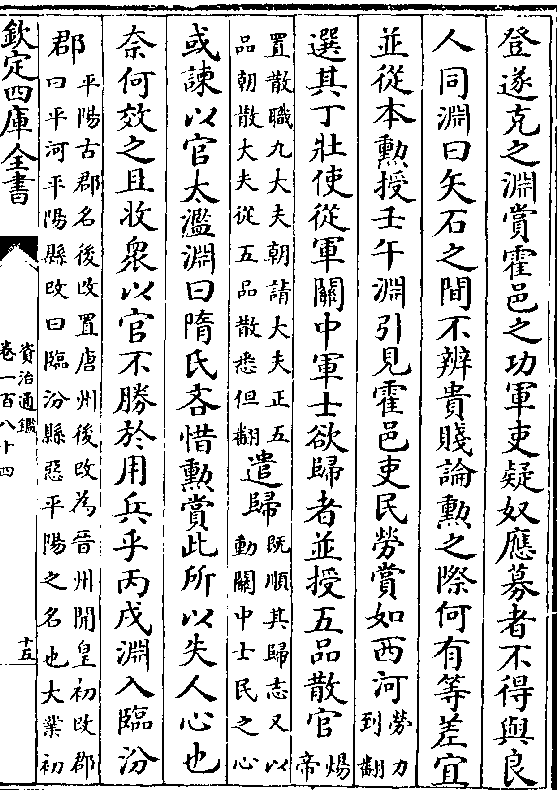 登遂克之淵賞霍邑之功軍吏疑奴應募者不得與良
人同淵曰矢石之間不辨貴賤論勲之際何有等差宜
並從本勲授壬午淵引見霍邑吏民勞賞如西河勞力
到翻
選其丁壯使從軍關中軍士欲歸者並授五品散官煬
帝
置散職九大夫朝請大夫正五
品朝散大夫從五品散悉但翻
遣歸
既順其歸志又以
動關中士民之心
或諫以官太濫淵曰隋氏吝惜勲賞此所以失人心也
奈何效之且收衆以官不勝於用兵乎丙戌淵入臨汾
郡
平陽古郡名後改置唐州後改為晉州開皇初改郡
曰平河平陽縣改曰臨汾縣惡平陽之名也大業初
欽定四庫全書
資治通鑑
卷一百八十四
十五